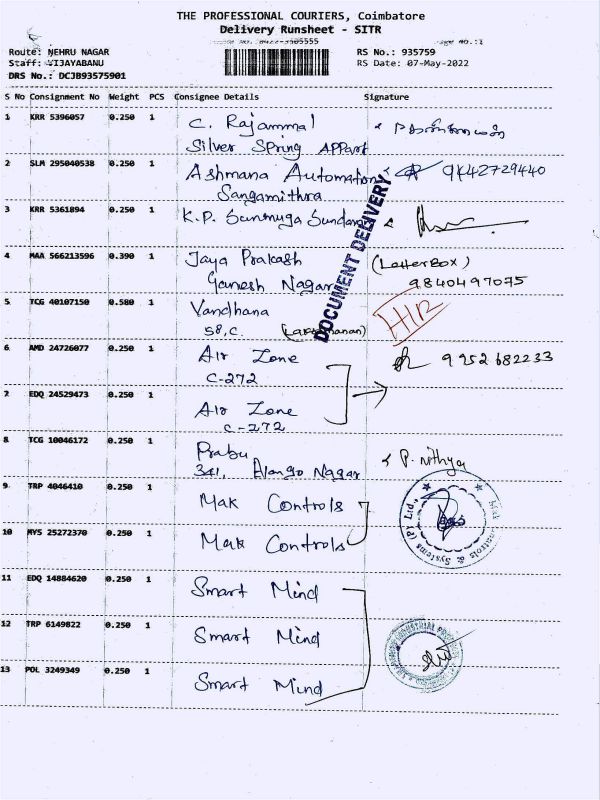 THE PROFESSIONAL COURIERS, Coimbatore
Delivery Runsheet - SITR
Route: NEHRU NAGAR
RS No.: 935759
Staff: VIJAYABANU
RS Date: 07-May-2022
DRS No.: DCJB93575901
S No Consignment No Weight PCS Consignee Details Signature
1 KRR 5396057 0.250 1 C. Rajammal
Silver Spring Appart
2 SLM 295040538 0.250 1 Ashmana Automation 9842729440
Sangamithra
3 KRR 5361894 0.250 1 K.P. Sunmuga Sundaram
4 MAA 566213596 0.390 1 Jaya Prakash (LetterBox)
Ganesh Nagar 9840497075
DOCUMENT DELIVERY
5 TCG 40107150 0.580 1 Vandhana
58, C.
6 AMD 24726077 0.250 1 Air Zone 9952682233
C-272
7 EDQ 24529473 0.250 1 Air Zone
C-272
8 TCG 10046172 0.250 1 Prabu P. nithya
341, Alango Nagar
9 TRP 4046410 0.250 1 Mak Controls
10 MYS 25272370 0.250 1 Mak Controls
11 EDQ 14884620 0.250 1 Smart Mind
12 TRP 6149822 0.250 1 Smart Mind
13 POL 3249349 0.250 1 Smart Mind